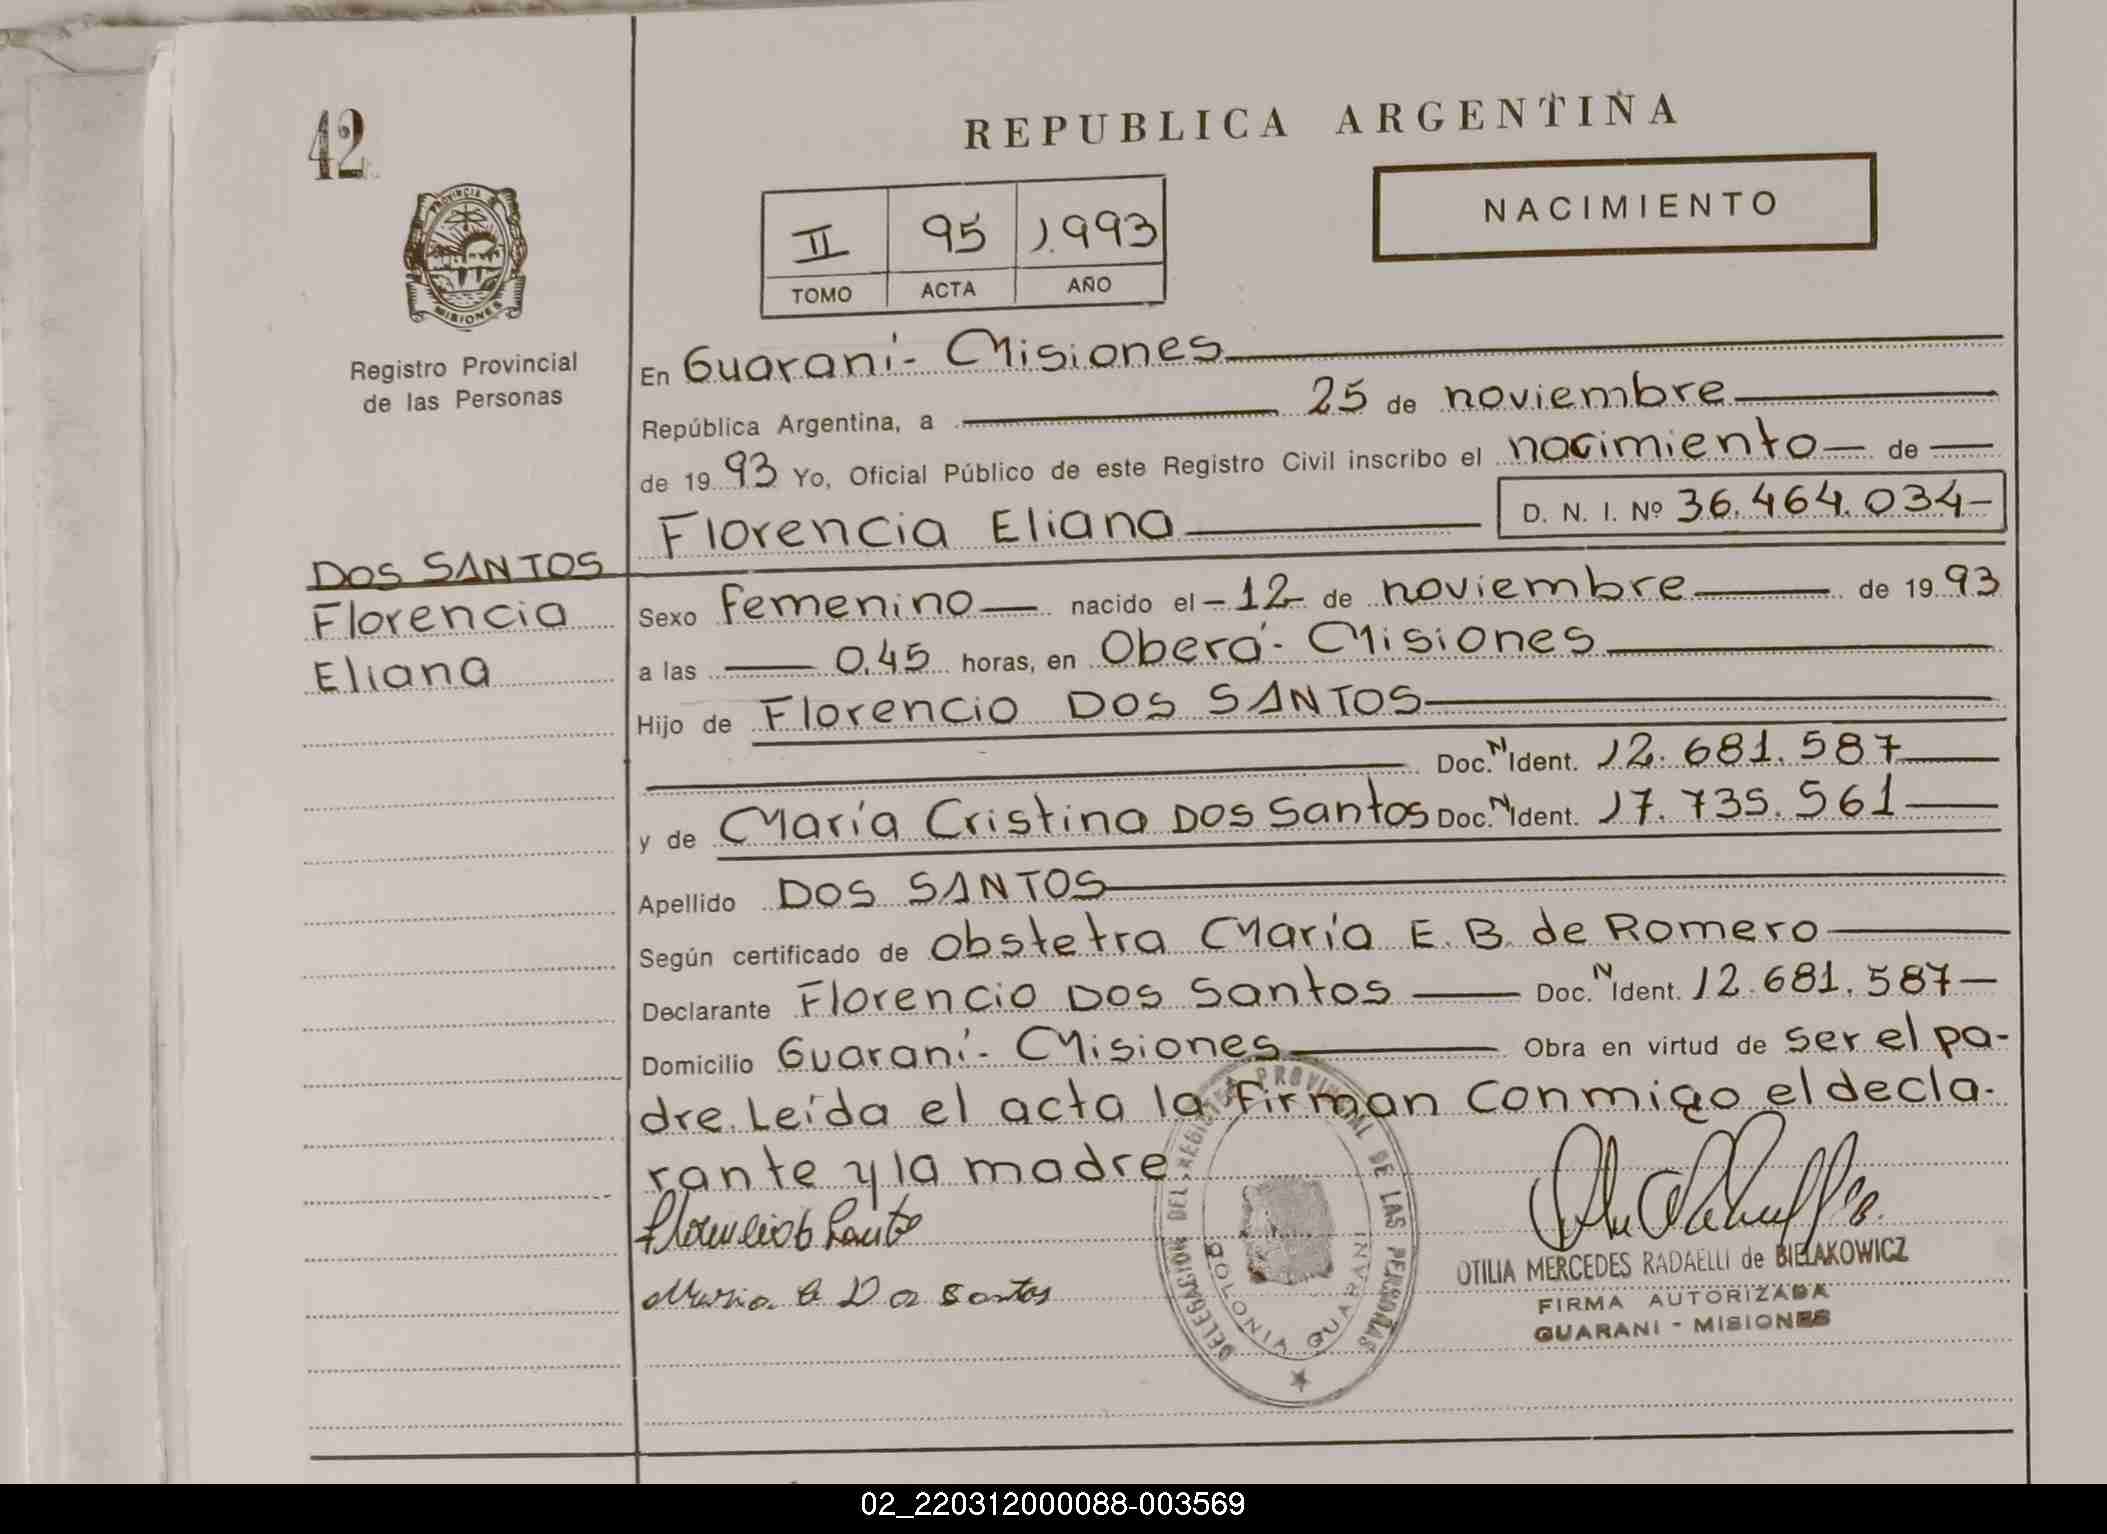 42
REPUBLICA ARGENTINA
NACIMIENTO
II 95 1.993
TOMO ACTA AÑO
PROVINCIA
MISIONES
Registro Provincial
de las Personas
En Guaraní - Misiones
República Argentina, a 25 de noviembre
de 19 93 Yo, Oficial Público de este Registro Civil inscribo el nacimiento de
Florencia Eliana D. N. I. Nº 36.464.034-
DOS SANTOS
Florencia
Eliana
Sexo femenino nacido el -12- de noviembre de 19 93
a las 0,45 horas, en Oberá - Misiones
Hijo de Florencio DOS SANTOS
Doc. N Ident. 12.681.587
y de María Cristina DOS Santos Doc. N Ident. 17.735.561
Apellido DOS SANTOS
Según certificado de obstetra María E. B. de Romero
Declarante Florencio DOS Santos Doc. N Ident. 12.681.587-
Domicilio Guaraní - Misiones Obra en virtud de ser el pa-
dre. Leída el acta la firman conmigo el decla-
rante y la madre
DELEGACION DEL REGISTRO PROVINCIAL DE LAS PERSONAS
COLONIA GUARANI
OTILIA MERCEDES RADAELLI de BIELAKOWICZ
FIRMA AUTORIZADA
GUARANI - MISIONES
02_220312000088-003569